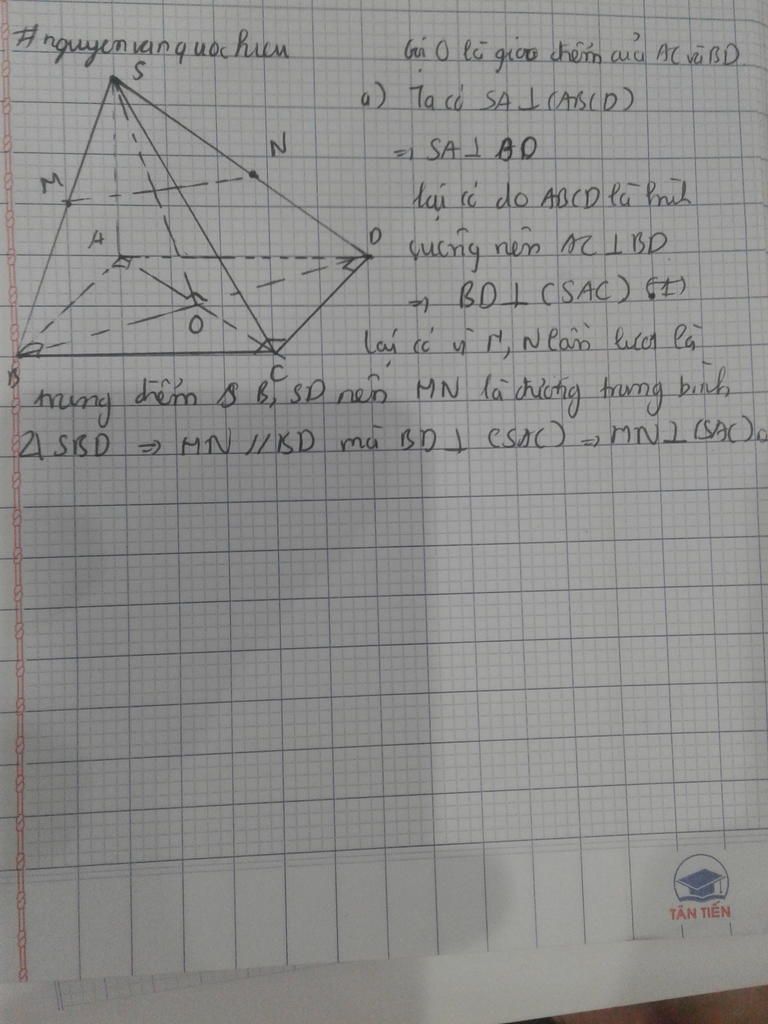 #nguyenvanquochieu
Gọi O là giao điểm của AC và BD
a) Ta có SA⊥(ABCD)
⇒ SA⊥BD
lại có do ABCD là hình
vuông nên AC⊥BD
⇒ BD⊥(SAC) (1)
lại có vì M, N lần lượt là
trung điểm SB, SD nên MN là đường trung bình
△SBD ⇒ MN//BD mà BD⊥(SAC) ⇒ MN⊥(SAC)
S
M
N
A
D
O
B
C
TÂN TIẾN